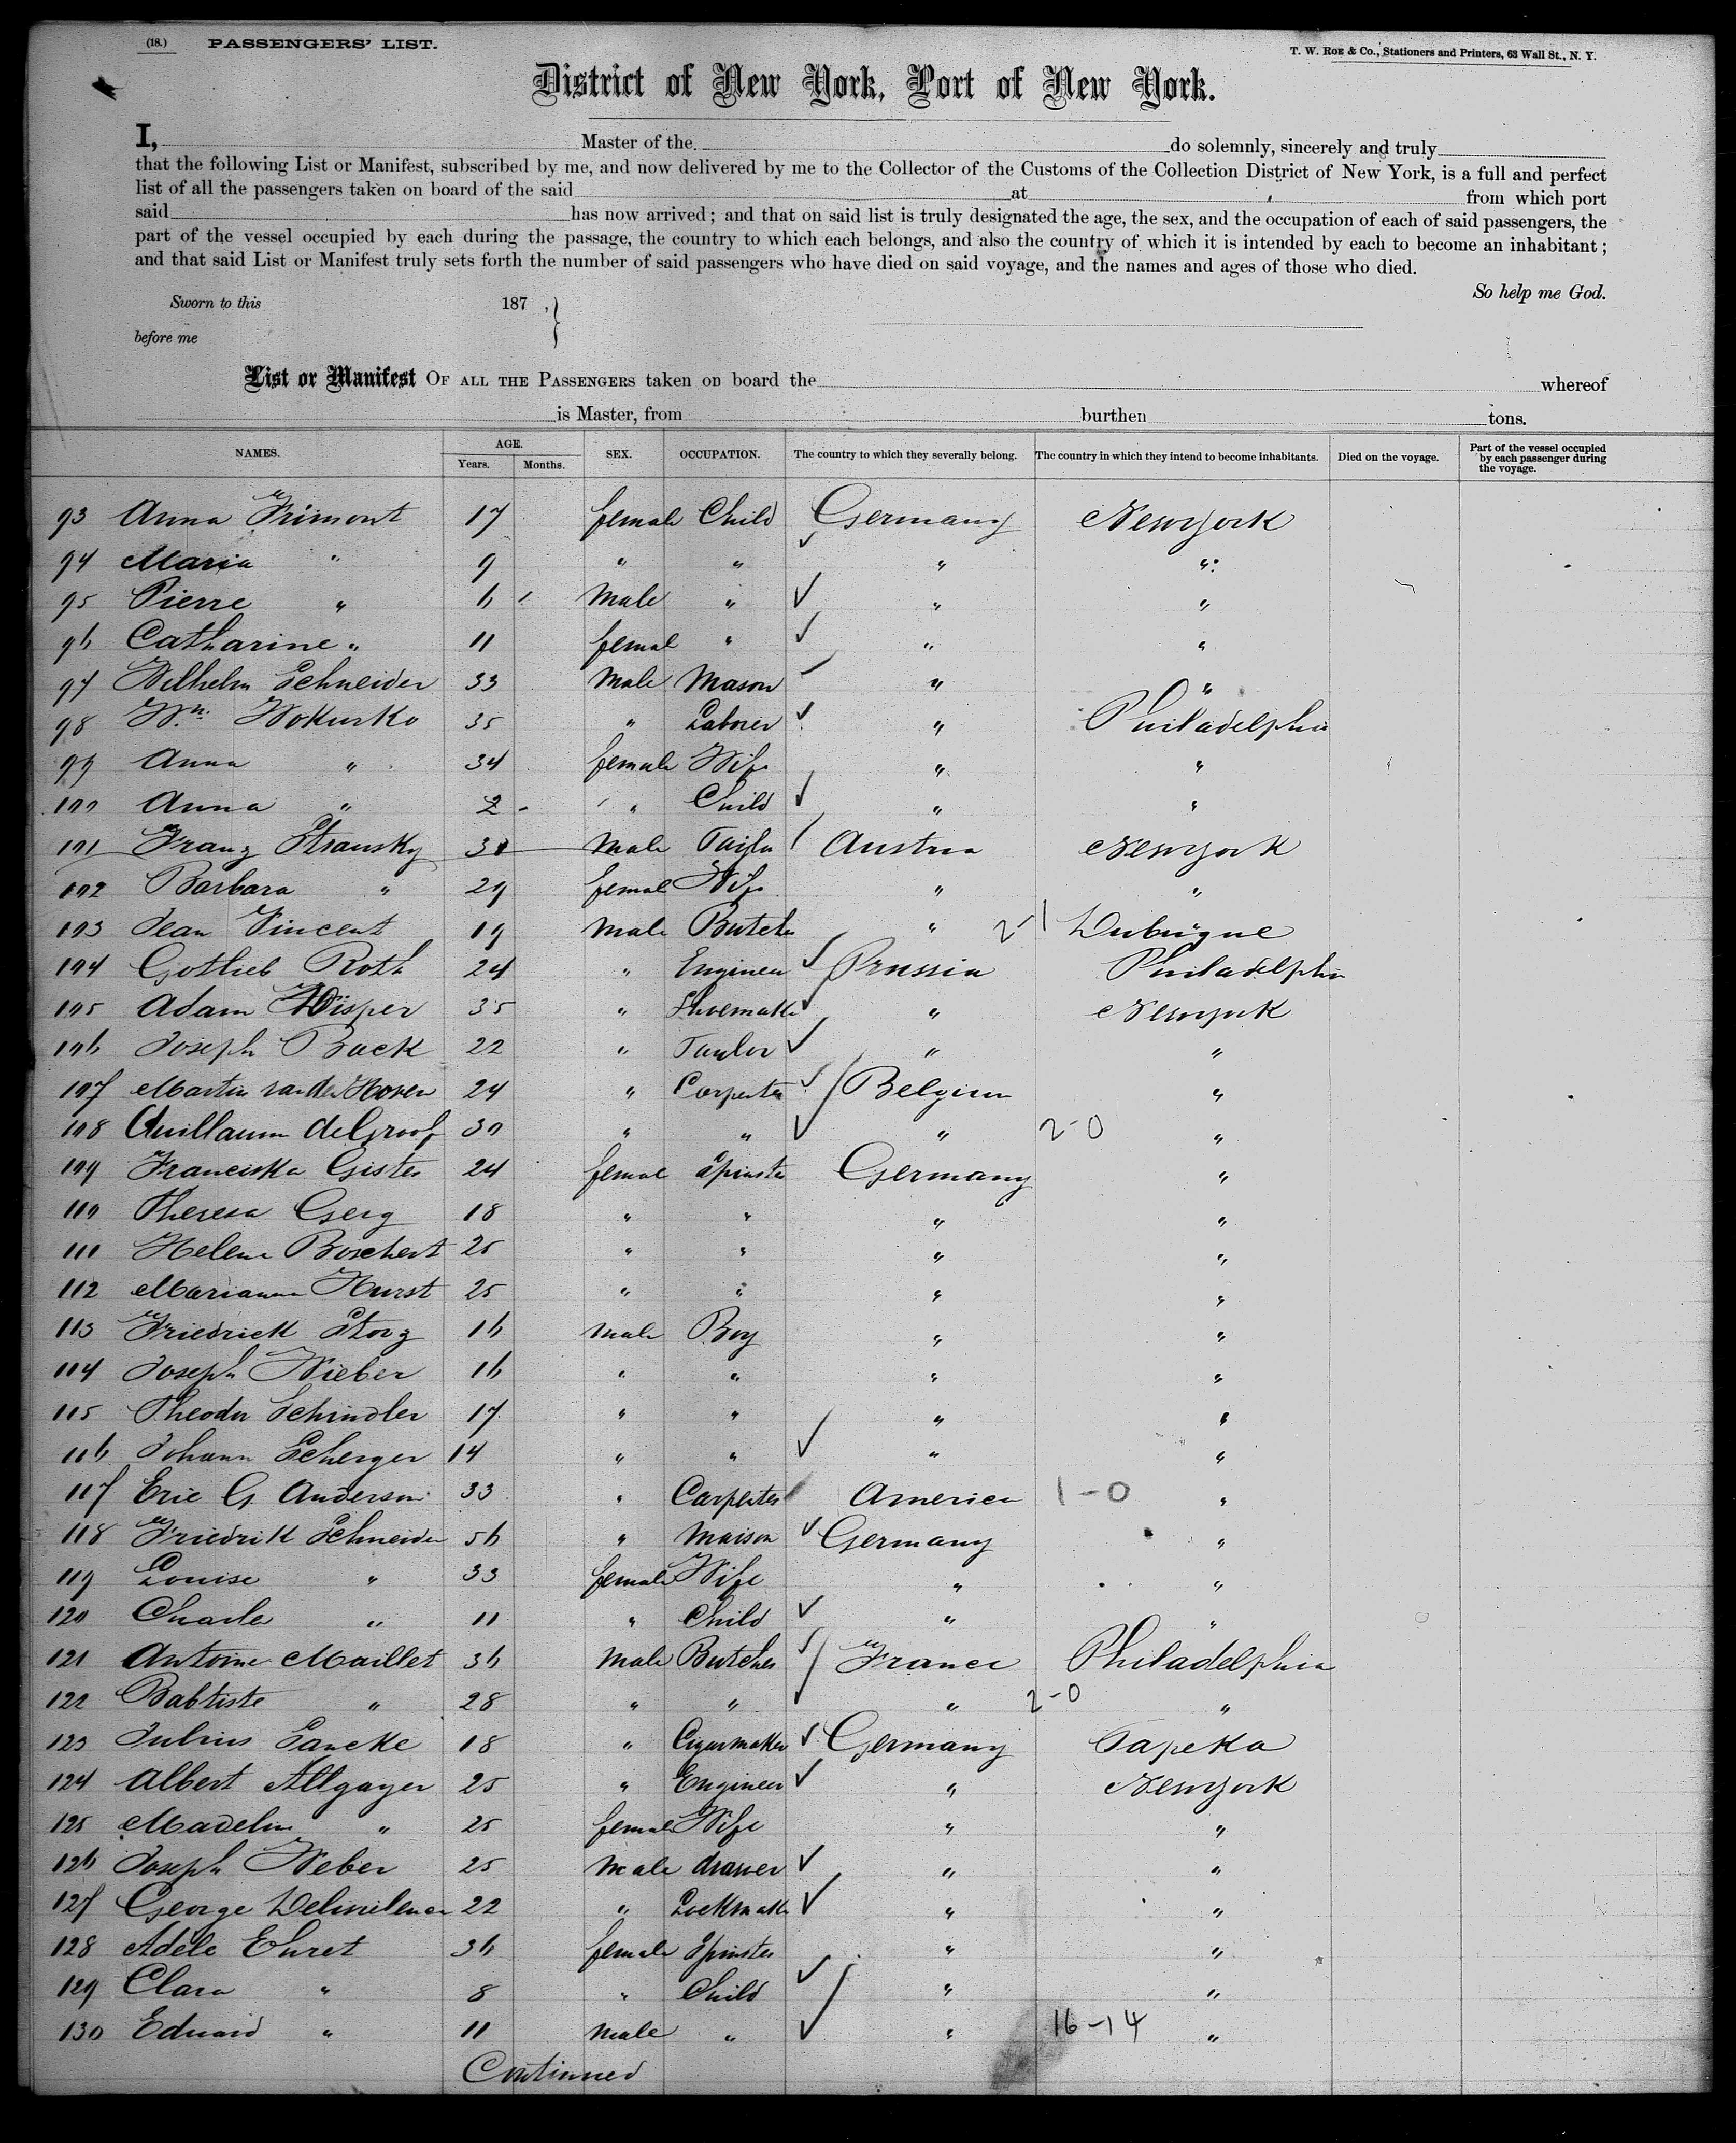 (18.) PASSENGERS' LIST.
T. W. ROE & Co., Stationers and Printers, 63 Wall St., N. Y.
District of New York, Port of New York.
I, Master of the do solemnly, sincerely and truly
that the following List or Manifest, subscribed by me, and now delivered by me to the Collector of the Customs of the Collection District of New York, is a full and perfect
list of all the passengers taken on board of the said at from which port
said has now arrived; and that on said list is truly designated the age, the sex, and the occupation of each of said passengers, the
part of the vessel occupied by each during the passage, the country to which each belongs, and also the country of which it is intended by each to become an inhabitant;
and that said List or Manifest truly sets forth the number of said passengers who have died on said voyage, and the names and ages of those who died.
So help me God.
Sworn to this 187 ,
before me
List or Manifest OF ALL THE PASSENGERS taken on board the whereof
is Master, from burthen tons.
NAMES. AGE. Years. Months. SEX. OCCUPATION. The country to which they severally belong. The country in which they intend to become inhabitants. Died on the voyage. Part of the vessel occupied by each passenger during the voyage.
93 Anna Frimont 17 female Child Germany Newyork
94 Maria " 9 " " " "
95 Pierre " 6 Male " " "
96 Catharine " 11 femal " " "
97 Wilhelm Schneider 33 Male Mason " "
98 Wm. Wokurko 35 " Laborer " Philadelphia
99 Anna " 34 female Wife " "
100 Anna " 2 " Child " "
101 Franz Stransky 30 Male Taylor Austria Newyork
102 Barbara " 29 femal Wife " "
103 Jean Vincent 19 Male Butche " 2-1 Dubuque
104 Gottlieb Roth 24 " Engineer Prussia Philadelphia
105 Adam 35 " Shoemake " Newyork
106 Joseph Back 22 " Taylor " "
107 Martin van der Hoven 24 " Carpenter Belgium "
108 Guillaum deGroof 30 " " " 2-0 "
109 Franciska Gister 24 femal Spinster Germany "
110 Theresa Gerg 18 " " " "
111 Helene Boschert 25 " " " "
112 Marianna Hurst 25 " " " "
113 Friedrick Storz 16 male Boy " "
114 Joseph Wieber 16 " " " "
115 Theodor Schindler 17 " " " "
116 Johann Scherger 14 " " " "
117 Eric G. Anderson 33 " Carpenter America 1-0 "
118 Friedrik Schneider 56 " Maison Germany "
119 Louise " 33 female Wife " "
120 Charles " 11 " Child " "
121 Antoine Maillet 36 Male Butcher France Philadelphia
122 Babtiste " 28 " " " 2-0 "
123 Julius Lancke 18 " Cigarmaker Germany Tapeka
124 Albert Allgayer 25 " Engineer " Newyork
125 Madeline " 25 female Wife " "
126 Joseph Weber 25 Male " "
127 George 22 " Lockmake " "
128 Adele Ehret 36 female Spinster " "
129 Clara " 8 " Child " "
130 Eduard " 11 male " " 16-14 "
Continued